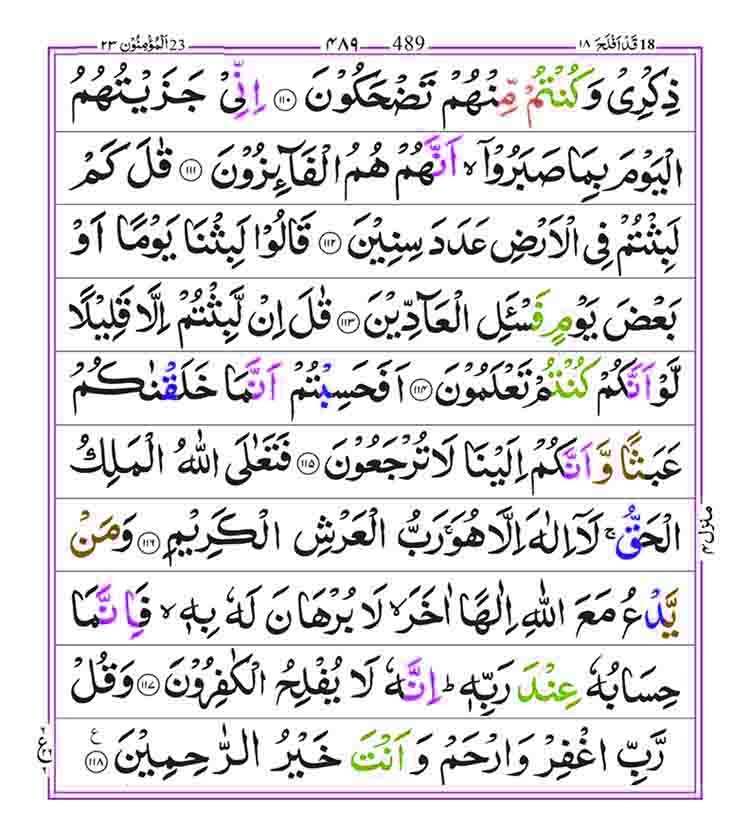 18 قَدْ اَفْلَحَ ۱۸ 489 ۴۸۹ 23 اَلْمُؤْمِنُوْن ۲۳
ذِكْرِیْ وَ كُنْتُمْ مِّنْهُمْ تَضْحَكُوْنَ ۝۱۱۰ اِنِّیْ جَزَیْتُهُمُ
الْیَوْمَ بِمَا صَبَرُوْۤا ۙ اَنَّهُمْ هُمُ الْفَآىِٕزُوْنَ ۝۱۱۱ قٰلَ كَمْ
لَبِثْتُمْ فِی الْاَرْضِ عَدَدَ سِنِیْنَ ۝۱۱۲ قَالُوْا لَبِثْنَا یَوْمًا اَوْ
بَعْضَ یَوْمٍ فَسْـَٔلِ الْعَآدِّیْنَ ۝۱۱۳ قٰلَ اِنْ لَّبِثْتُمْ اِلَّا قَلِیْلًا
لَّوْ اَنَّكُمْ كُنْتُمْ تَعْلَمُوْنَ ۝۱۱۴ اَفَحَسِبْتُمْ اَنَّمَا خَلَقْنٰكُمْ
عَبَثًا وَّ اَنَّكُمْ اِلَیْنَا لَا تُرْجَعُوْنَ ۝۱۱۵ فَتَعٰلَی اللّٰهُ الْمَلِكُ
الْحَقُّ ۚ لَاۤ اِلٰهَ اِلَّا هُوَ ۚ رَبُّ الْعَرْشِ الْكَرِیْمِ ۝۱۱۶ وَ مَنْ
یَّدْعُ مَعَ اللّٰهِ اِلٰهًا اٰخَرَ ۙ لَا بُرْهَانَ لَهٗ بِهٖ ۙ فَاِنَّمَا
حِسَابُهٗ عِنْدَ رَبِّهٖ ؕ اِنَّهٗ لَا یُفْلِحُ الْكٰفِرُوْنَ ۝۱۱۷ وَ قُلْ
رَّبِّ اغْفِرْ وَ ارْحَمْ وَ اَنْتَ خَیْرُ الرّٰحِمِیْنَ ۝۱۱۸ ع
منزل ۴
ع